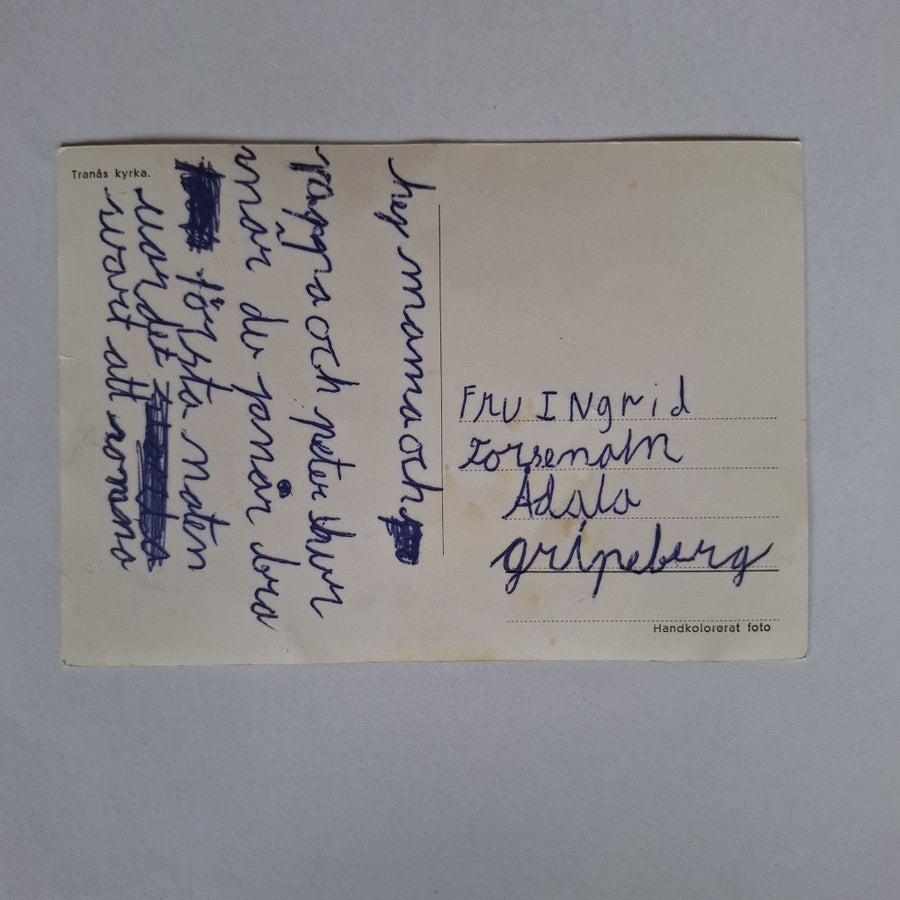 Tranås kyrka.
hej mamma och
pappa och peter hur
mår du jamår bra
första naten
vardet
svort att somna
Fru INgrid
Forsemalm
Ådala
gripeberg
Handkolorerat foto